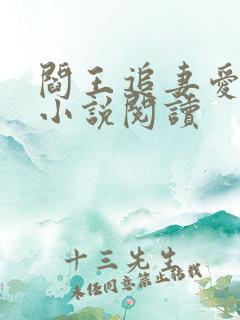 閻王追妻愛
小說閱讀
十三先生
未经同意禁止转载